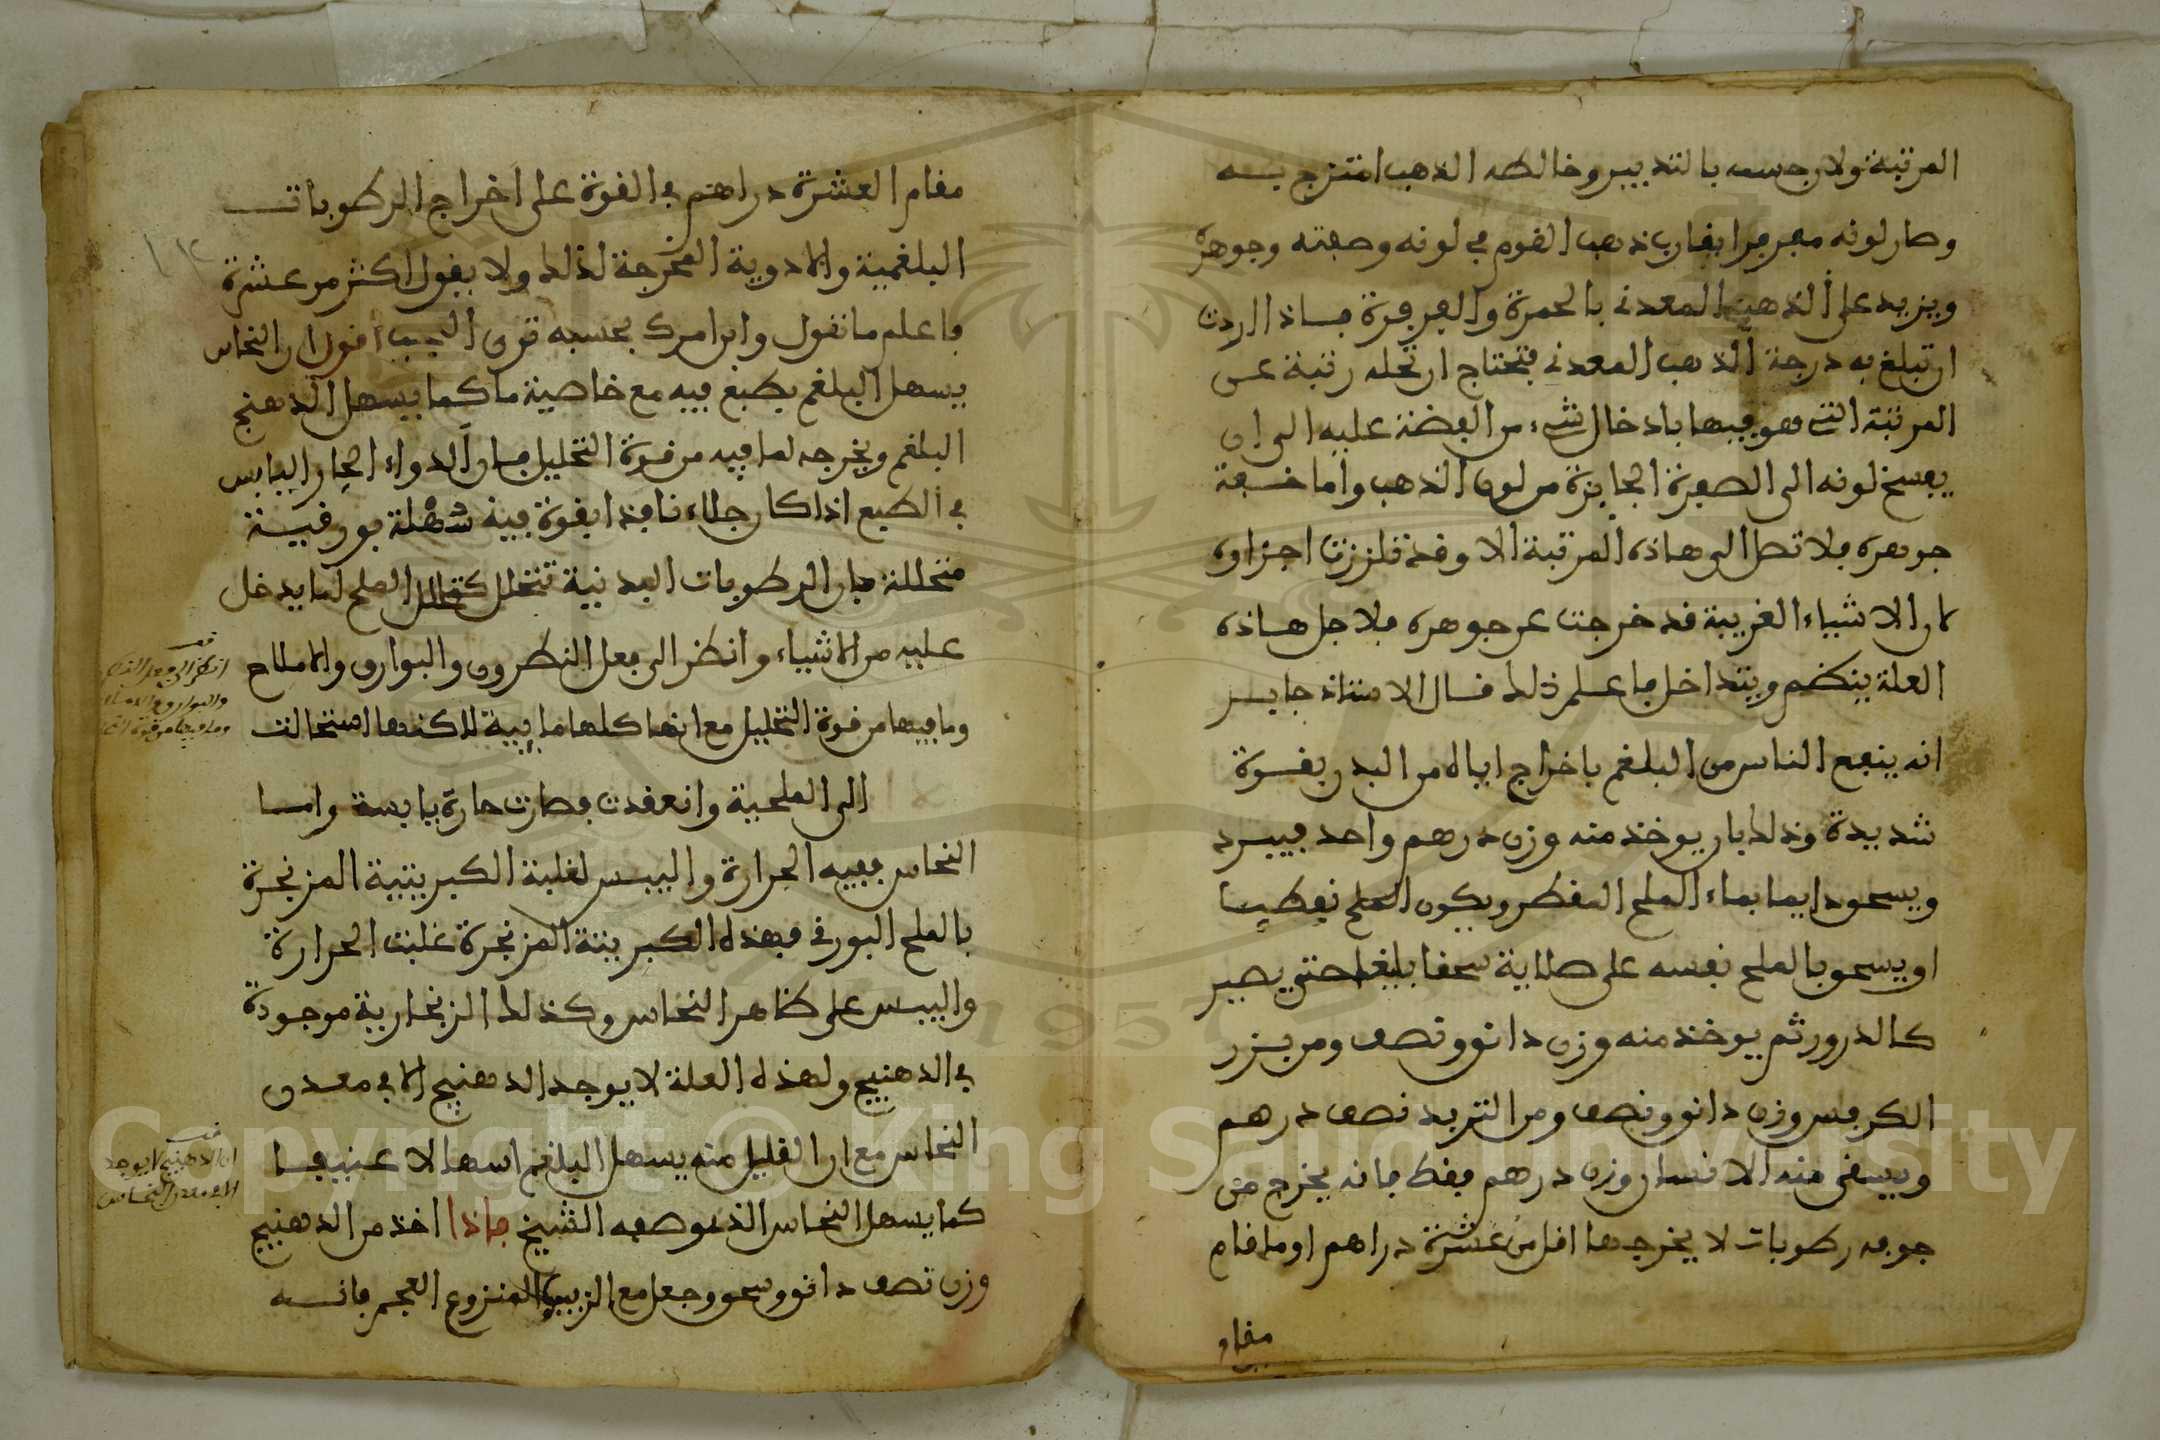 المرتبة ولان جسمه بالتدبير وخالطه الذهب امتزج به
وصار لونه مفرفرا يقارب ذهب القوم في لونه وصبغته وجوهره
ويزيد على الذهب المعدني بالحمرة والفرفرة فاذا اردت
ان تبلغ به درجة الذهب المعدني فتحتاج ان تحله رتبة عن
المرتبة التي هو فيها بادخال شيء من الفضة عليه الى ان
يفسخ لونه الى الصفرة الجايزة من لون الذهب واما خسة
جوهره فلا تصل الى هاذه المرتبة الا وقد تلززت اجزاوه
لان الاشياء الغريبة قد خرجت عن جوهره فلاجل هاذه
العلة ينكضم ويتداخل فاعلم ذلك قال الاستاذ جابر
انه ينفع الناس من البلغم باخراج اياه من البدن بقوة
شديدة وذلك بان يوخذ منه وزن درهم واحد فيبرد
ويسحق دايما بماء الملح المقطر ويكون الملح نفطيا
او يسحق بالملح نفسه على صلاية سحقا بليغا حتى يصير
كالذرور ثم يوخذ منه وزن دانق ونصف ومن بزر
الكرفس وزن دانق ونصف ومن التربد نصف درهم
ويسقى منه الانسان وزن درهم فقط فانه يخرج من
جوفه رطوبات لا يخرجها اقل من عشرة دراهم او ما قام
مقام
مقام العشرة دراهم في القوة على اخراج الرطوبات
البلغمية والادوية المخرجة لذلك ولا يقول اكثر من عشرة
فاعلم ما نقول وابن امرك بحسبه ترى العجب اقول ان النحاس
يسهل البلغم بطبع فيه مع خاصية ما كما يسهل الدهنج
البلغم ويخرجه لما فيه من قوة التحليل فان الدواء الحار اليابس
في الطبع اذا كان جلاء نافذا بقوة فيه سهلة بورقية
متحللة فان الرطوبات البدنية تتحلل كتحلل الملح لما يدخل
عليه من الاشياء وانظر الى فعل النطرون والبوارق والاملاح
وما فيها من قوة التحليل مع انها كلها مايية لاكنها استحالت
الى الملحية وانعقدت فصارت حارة يابسة واما
النحاس ففيه الحرارة واليبس لغلبة الكبريتية المزنجرة
بالملح البورقي فبهذه الكبريتة المزنجرة غلبت الحرارة
واليبس على ظاهر النحاس وكذلك الزنجارية موجودة
في الدهنج ولهذه العلة لا يوجد الدهنج الا في معدن
النحاس مع ان القليل منه يسهل البلغم اسهالا عنيفا
كما يسهل النحاس الذي وصفه الشيخ فاذا اخذ من الدهنج
وزن نصف دانق وسحق وجعل مع الزبيب المنزوع العجم فانه
قف
انظر الى فعل
والبوارق والاملاح
وما فيها من قوة
قف
ان الدهنج لا يوجد
الا في معدن النحاس